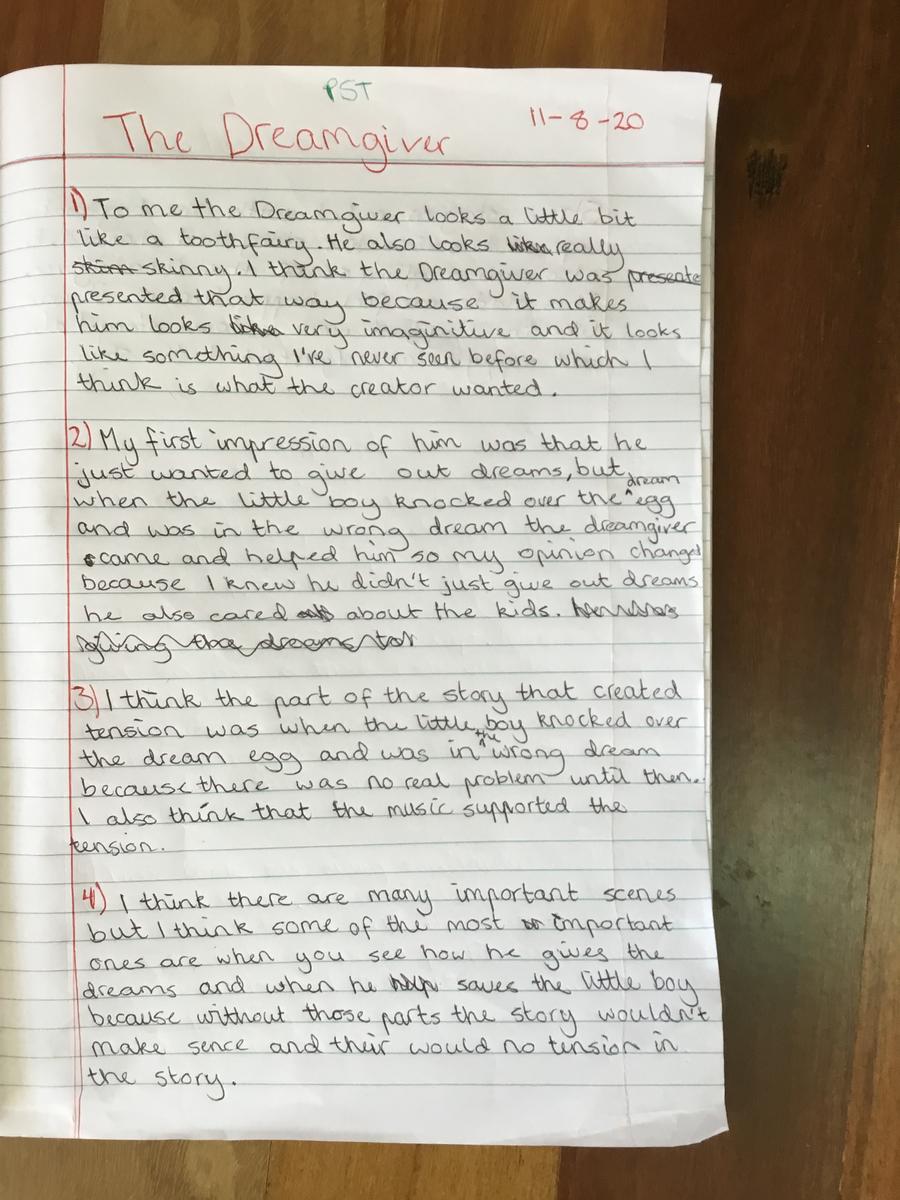 PST
The Dreamgiver 11-8-20
1) To me the Dreamgiver looks a little bit
like a toothfairy. He also looks really
skinny. I think the Dreamgiver was presente
presented that way because it makes
him looks very imaginitive and it looks
like something I've never seen before which I
think is what the creator wanted.
2) My first impression of him was that he
just wanted to give out dreams, but
when the little boy knocked over the dream egg
and was in the wrong dream the dreamgiver
came and helped him so my opinion changed
because I knew he didn't just give out dreams
he also cared about the kids.
3) I think the part of the story that created
tension was when the little boy knocked over
the dream egg and was in the wrong dream
because there was no real problem until then.
I also think that the music supported the
tension.
4) I think there are many important scenes
but I think some of the most important
ones are when you see how he gives the
dreams and when he saves the little boy
because without those parts the story wouldn't
make sence and their would no tension in
the story.